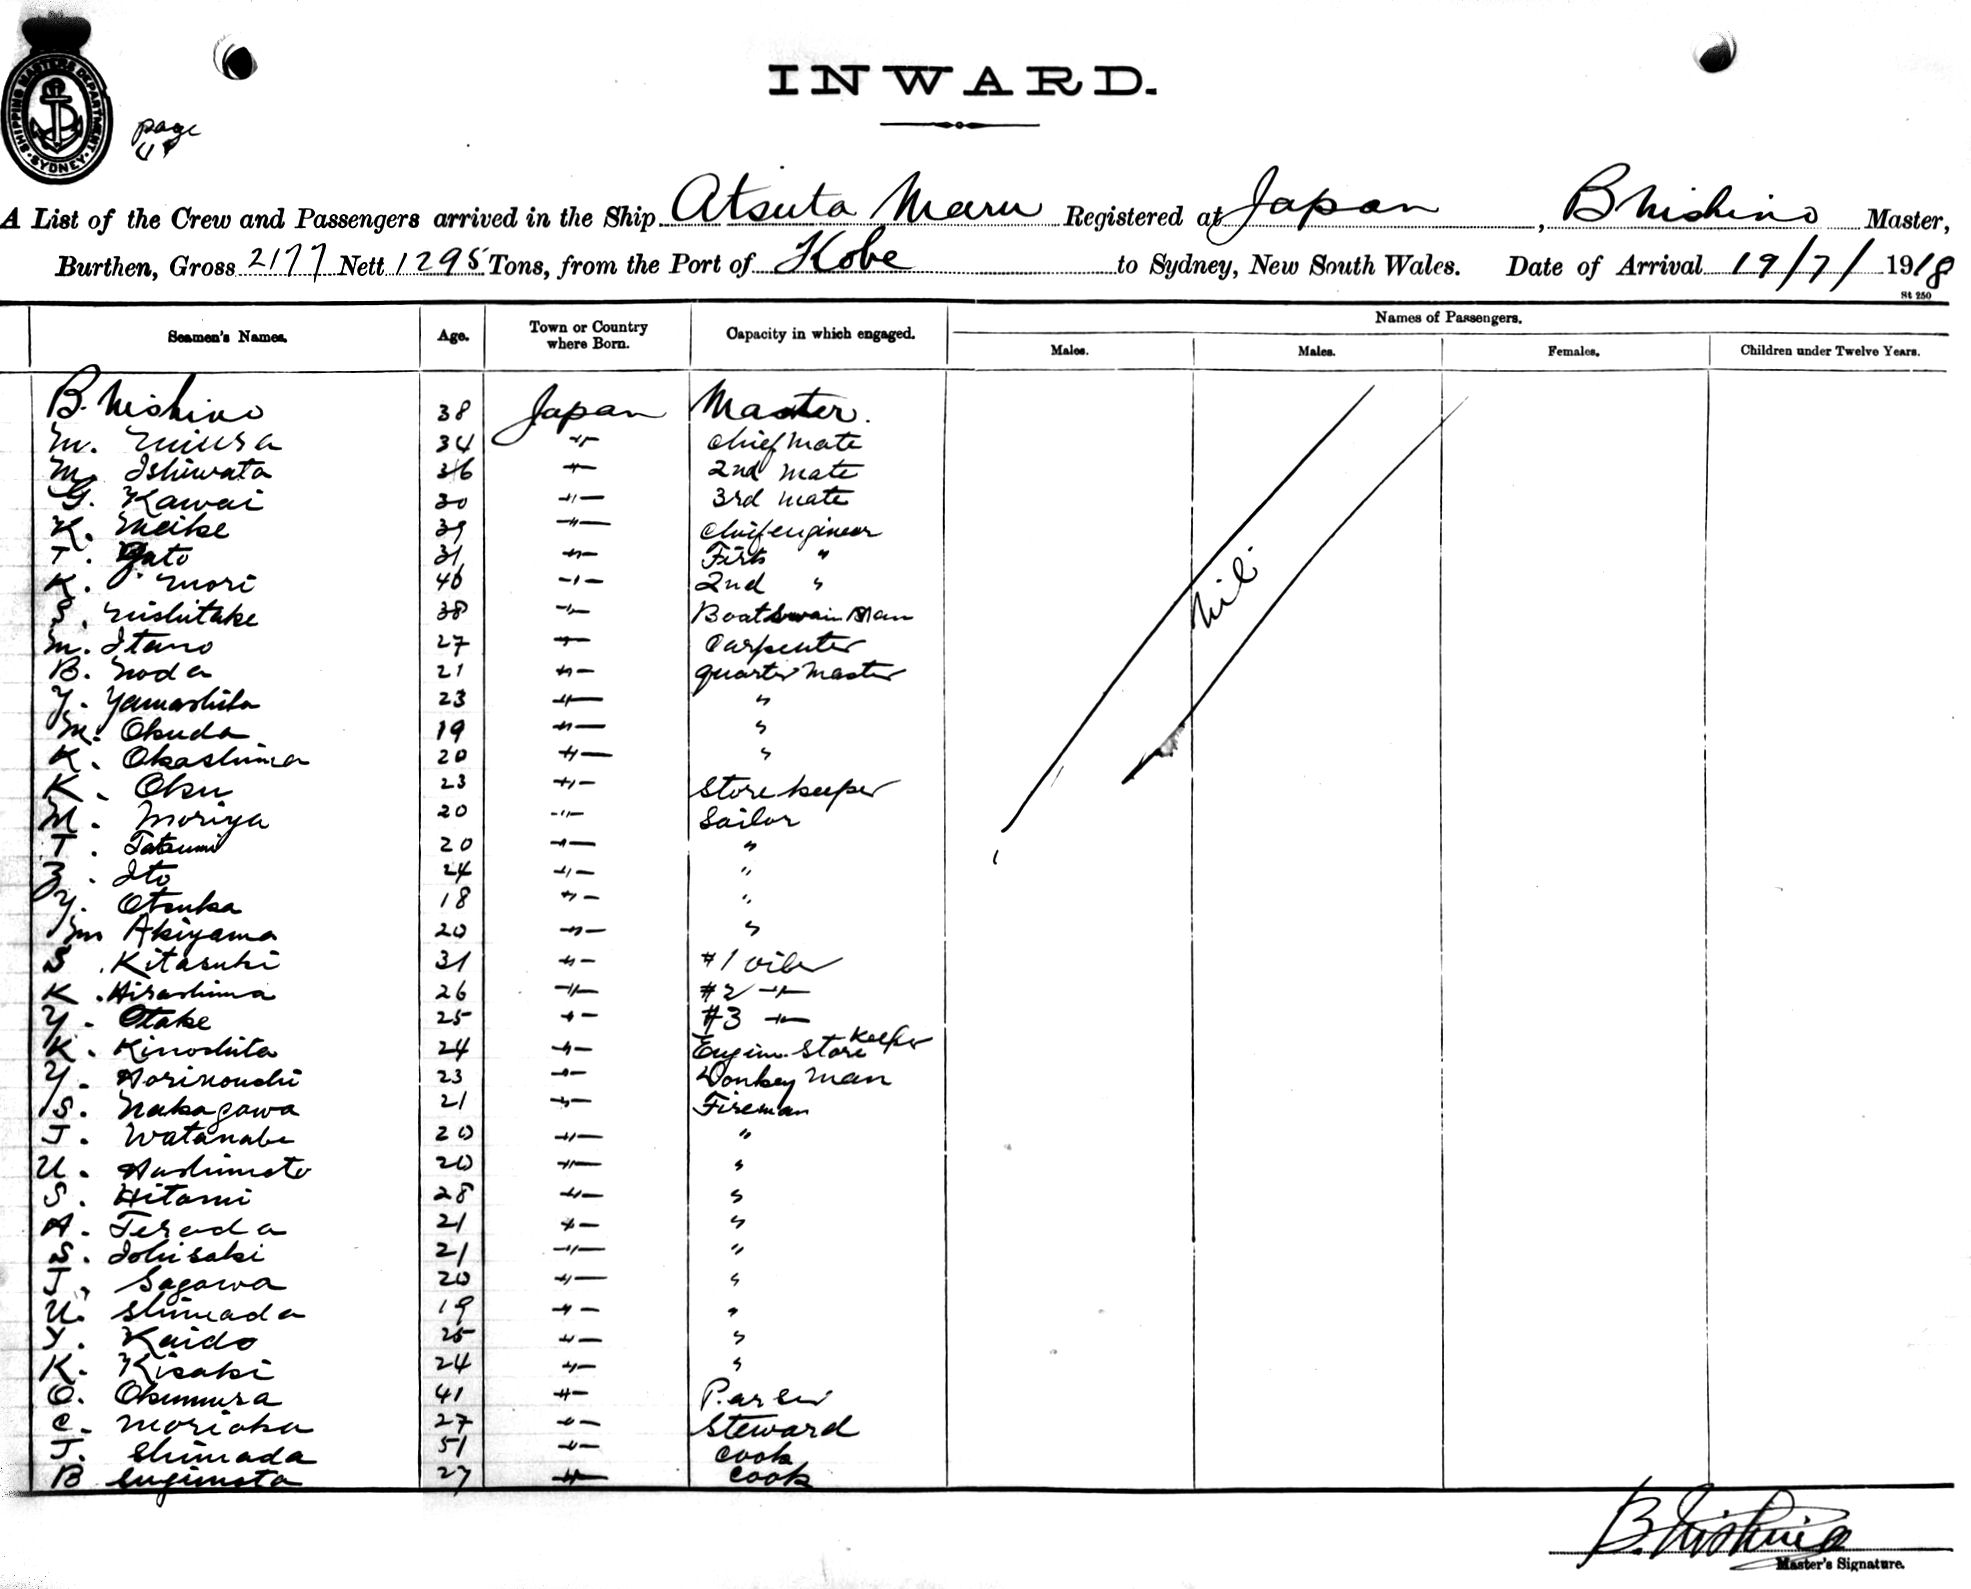 SHIPPING MASTERS DEPARTMENT SYDNEY
page
INWARD.
A List of the Crew and Passengers arrived in the Ship Atsuta Maru Registered at Japan, B Nishino Master,
Burthen, Gross 2177 Nett 1295 Tons, from the Port of Kobe to Sydney, New South Wales. Date of Arrival 19/7/1918
St 250
Seamen's Names. Age. Town or Country where Born. Capacity in which engaged. Names of Passengers.
Males. Males. Females. Children under Twelve Years.
B. Nishino 38 Japan Master.
M. Miura 34 " chief mate
M. Ishiwata 36 " 2nd mate
G. Kawai 30 " 3rd mate
K. Meike 39 " chief engineer
T. Gato 31 " Firts "
K. Mori 40 " 2nd "
S. Nishitake 38 " Boatswain Man
M. Itano 27 " Carpenter
B. Noda 21 " quarter master
Y. Yamashita 23 " "
M. Okuda 19 " "
K. Okashima 20 " "
K. Oku 23 " Store keeper
M. Moriya 20 " Sailor
T. Tatsumi 20 " "
Z. Ito 24 " "
Y. Otsuka 18 " "
M Akiyama 20 " "
S. Kitasuki 31 " #1 oiler
K. Hirashima 26 " #2 "
Y. Otake 25 " #3 "
K. Kinoshita 24 " Engine Store Keeper
Y. Horinouchi 23 " Donkey man
S. Nakagawa 21 " Fireman
J. Watanabe 20 " "
U. Hashimoto 20 " "
S. Hitomi 28 " "
A. Terada 21 " "
S. Iohisaki 21 " "
J. Sagawa 20 " "
U. Shimada 19 " "
Y. Kaido 25 " "
K. Kisaki 24 " "
O. Okumura 41 " Parser
C. Morioka 27 " Steward
J. Shimada 51 " cook
B Sugimoto 27 " cook
Nil.
B. Nishino
Master's Signature.